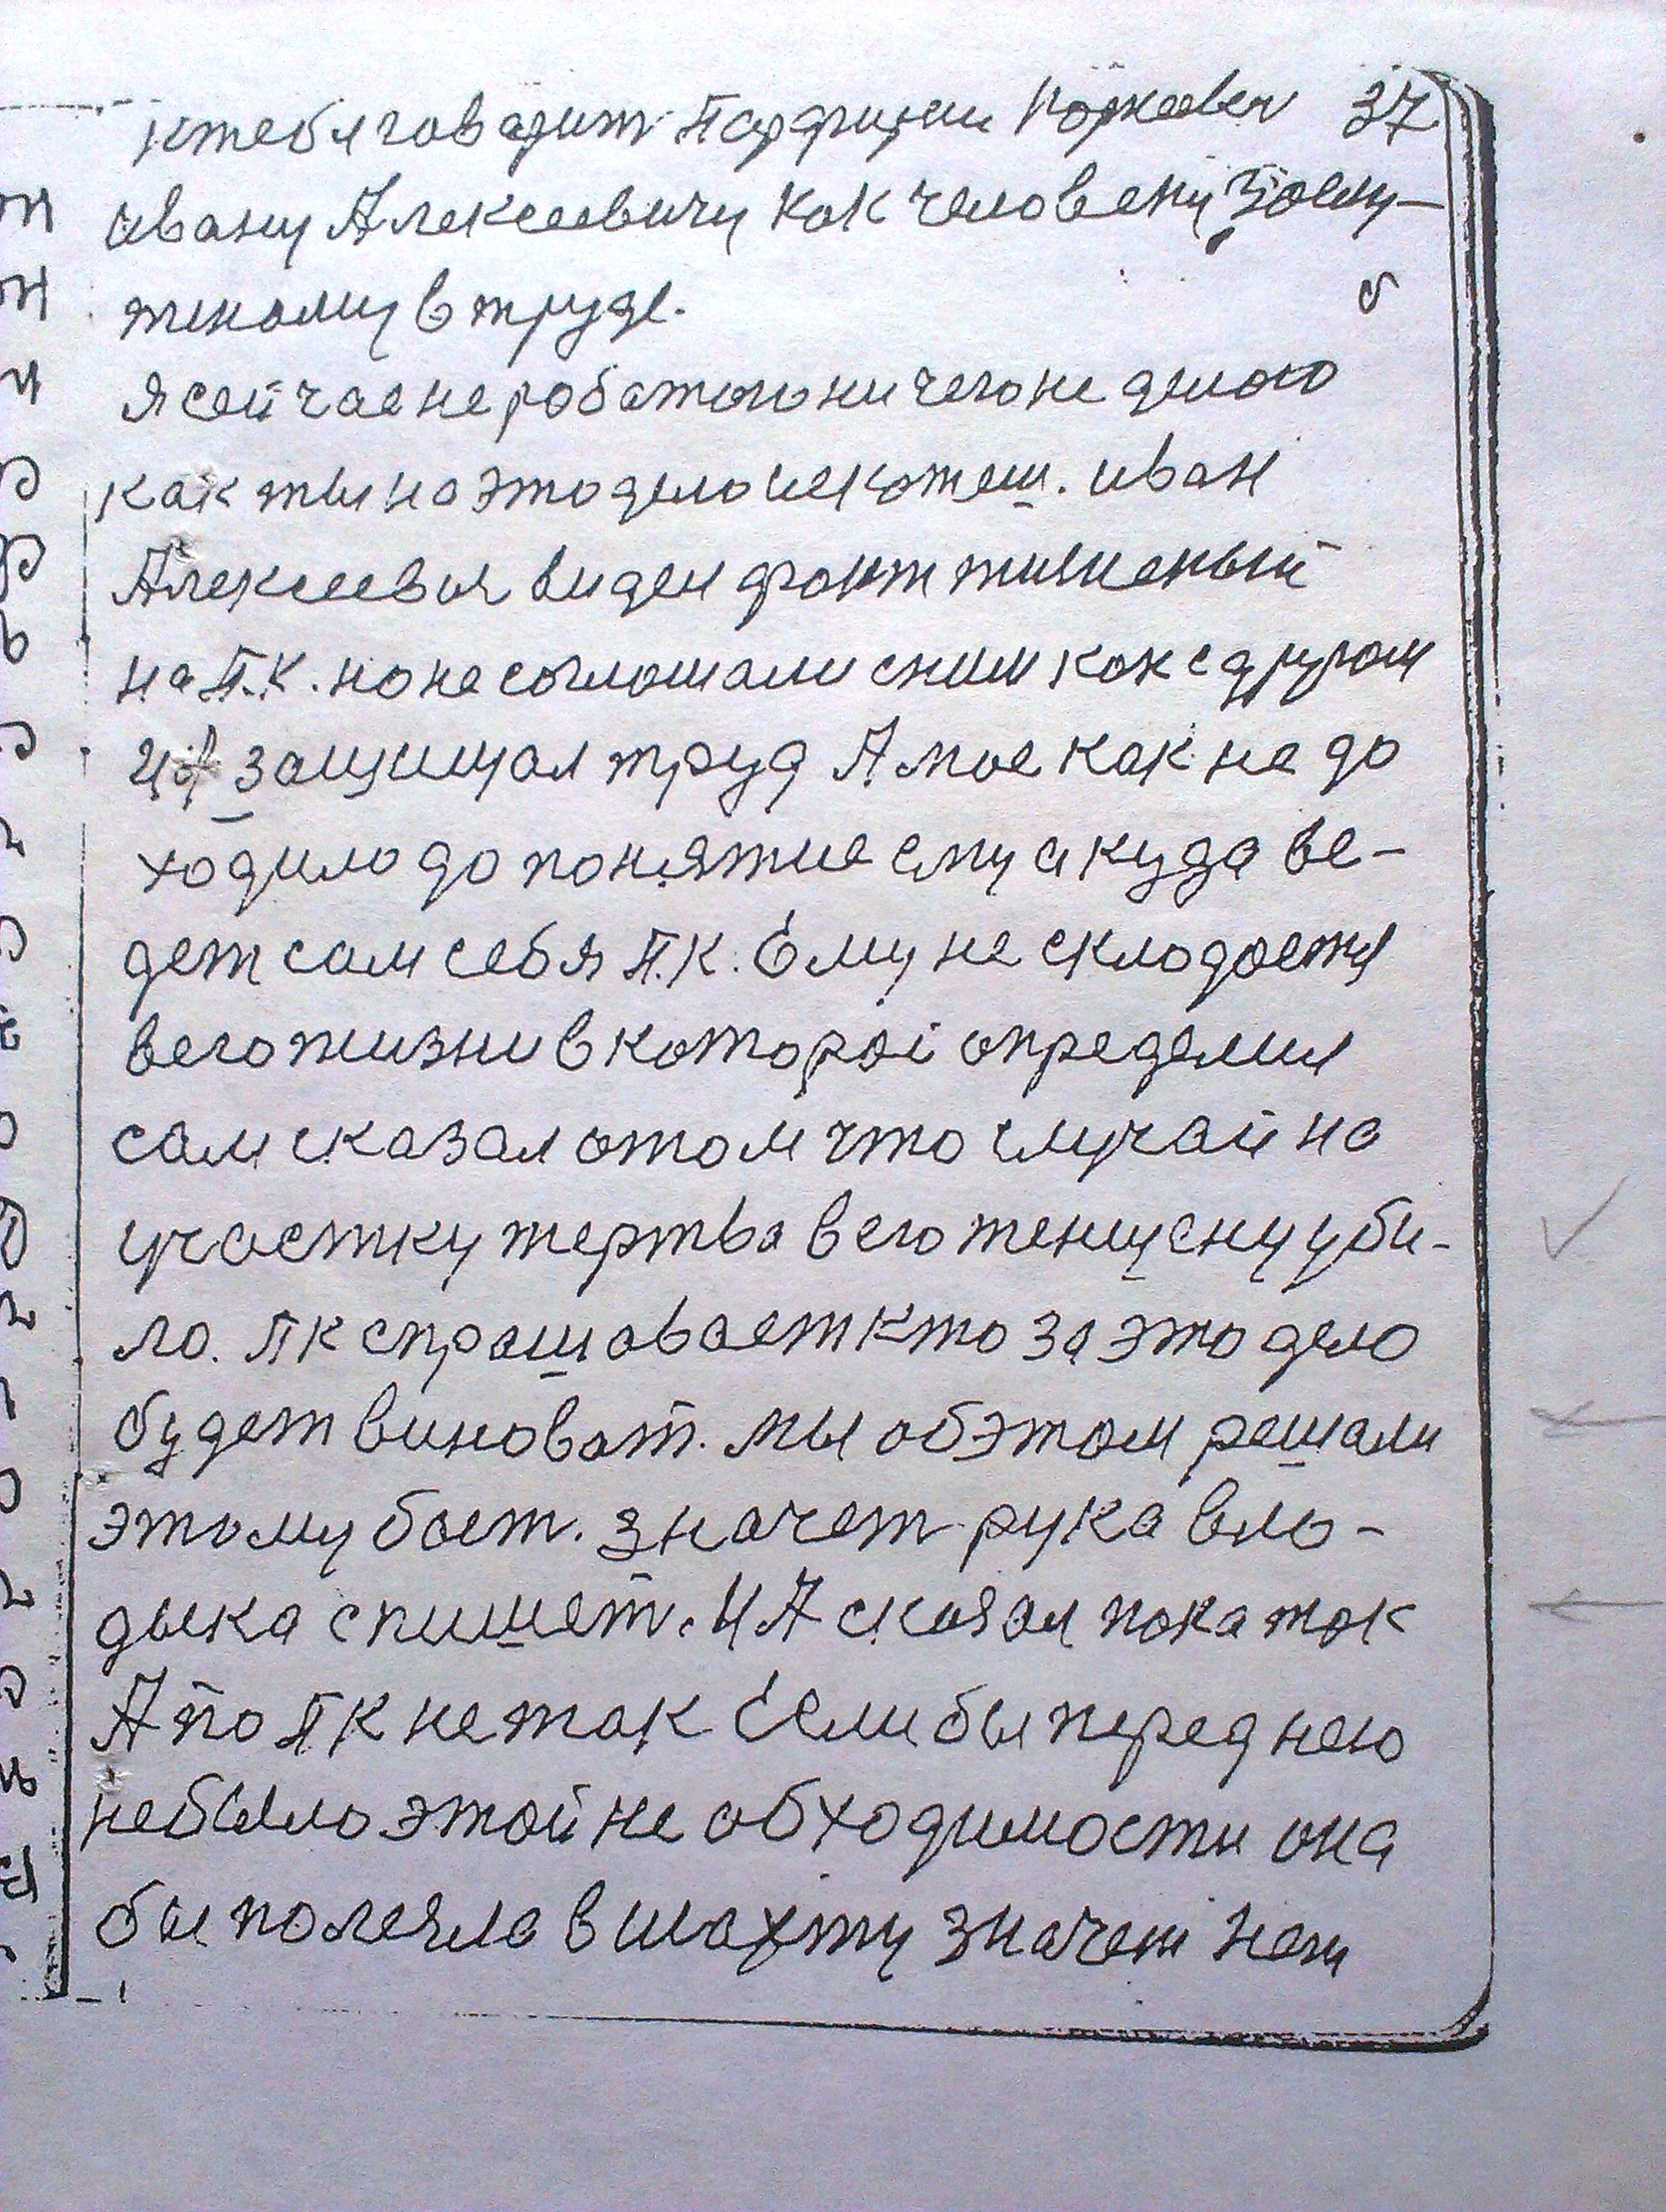 к тебя говарит Парфирии 37
Ивану Алексеевичу как человеку Заслу-
женому в труде.
я сейчас не работою ничего не делаю
как ты на это дело иск Иван
Алексеевич виден факт жизненый
на П.К. но не соглошали сним как с другом
И А защищал труд А мое как не до
ходило до понятие ему а куда ве-
дет сам себя П.К. Ему не склодоется
в его жизни в которой определил
сам сказал о том что случай на
участку жертва в его женщену уби-
ло. ПК спрашовает кто за это дело
будет виноват. мы об этом решали
этому быет. значет рука вло-
дыка спишет. И А сказал пока так
А по ПК не так Если бы перед нею
не было этой не обходимости она
бы полезла в шахту значет нет